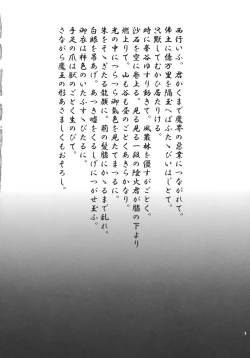 西行いふ。君かくまで魔界の悪業につながれて。
佛土に億万里を隔玉へばふたゝびいはじとて。
只黙してむかひ居たりける。
時に峯谷ゆすり動きて。風叢林を僵すがごとく。
沙石を空に巻上る。見る見る一段の陰火君が膝の下より
燃上りて。山も谷も昼のごとくあきらかなり。
光の中につらつら御氣色を見たてまつるに。
朱をそゝぎたる龍顔に。荊の髪膝にかゝるまで乱れ。
白眼を吊あげ。あつき嘘をくるしげにつがせ玉ふ。
御衣は柿色のいたうすゝびたるに。
手足の爪は獣のごとく生のびて。
さながら魔王の形あさましくもおそろし。